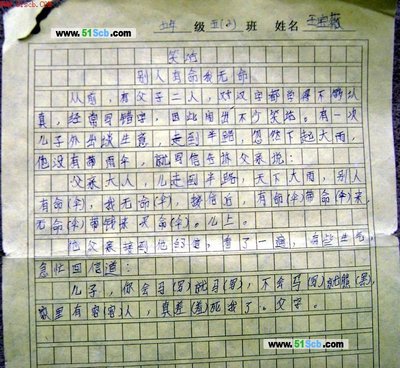 www.51Scb.com
www.51Scb.com
年 级 五(2) 班 姓名 王
笑话
别人有命我无命
从前，有父子二人，对汉字都学得不够认
真，经常写错字，因此闹出不少笑话。有一次
儿子外出谈生意，走到半路，忽然下起大雨，
他没有带雨伞，就写信告诉父亲说：
父亲大人，儿走到半路，天下大雨，别人
有命(伞)，我无命(伞)，接信后，有命(伞)带命(伞)来，
无命(伞)带钱来买命(伞)。儿上。
他父亲接到他的信，看了一遍，有些生气，
急忙回信道：
儿子，你会马(写)就马(写)，不会马(写)就熊
家里有 人，真差(羞)死我了。父字。
www.51Scb.com